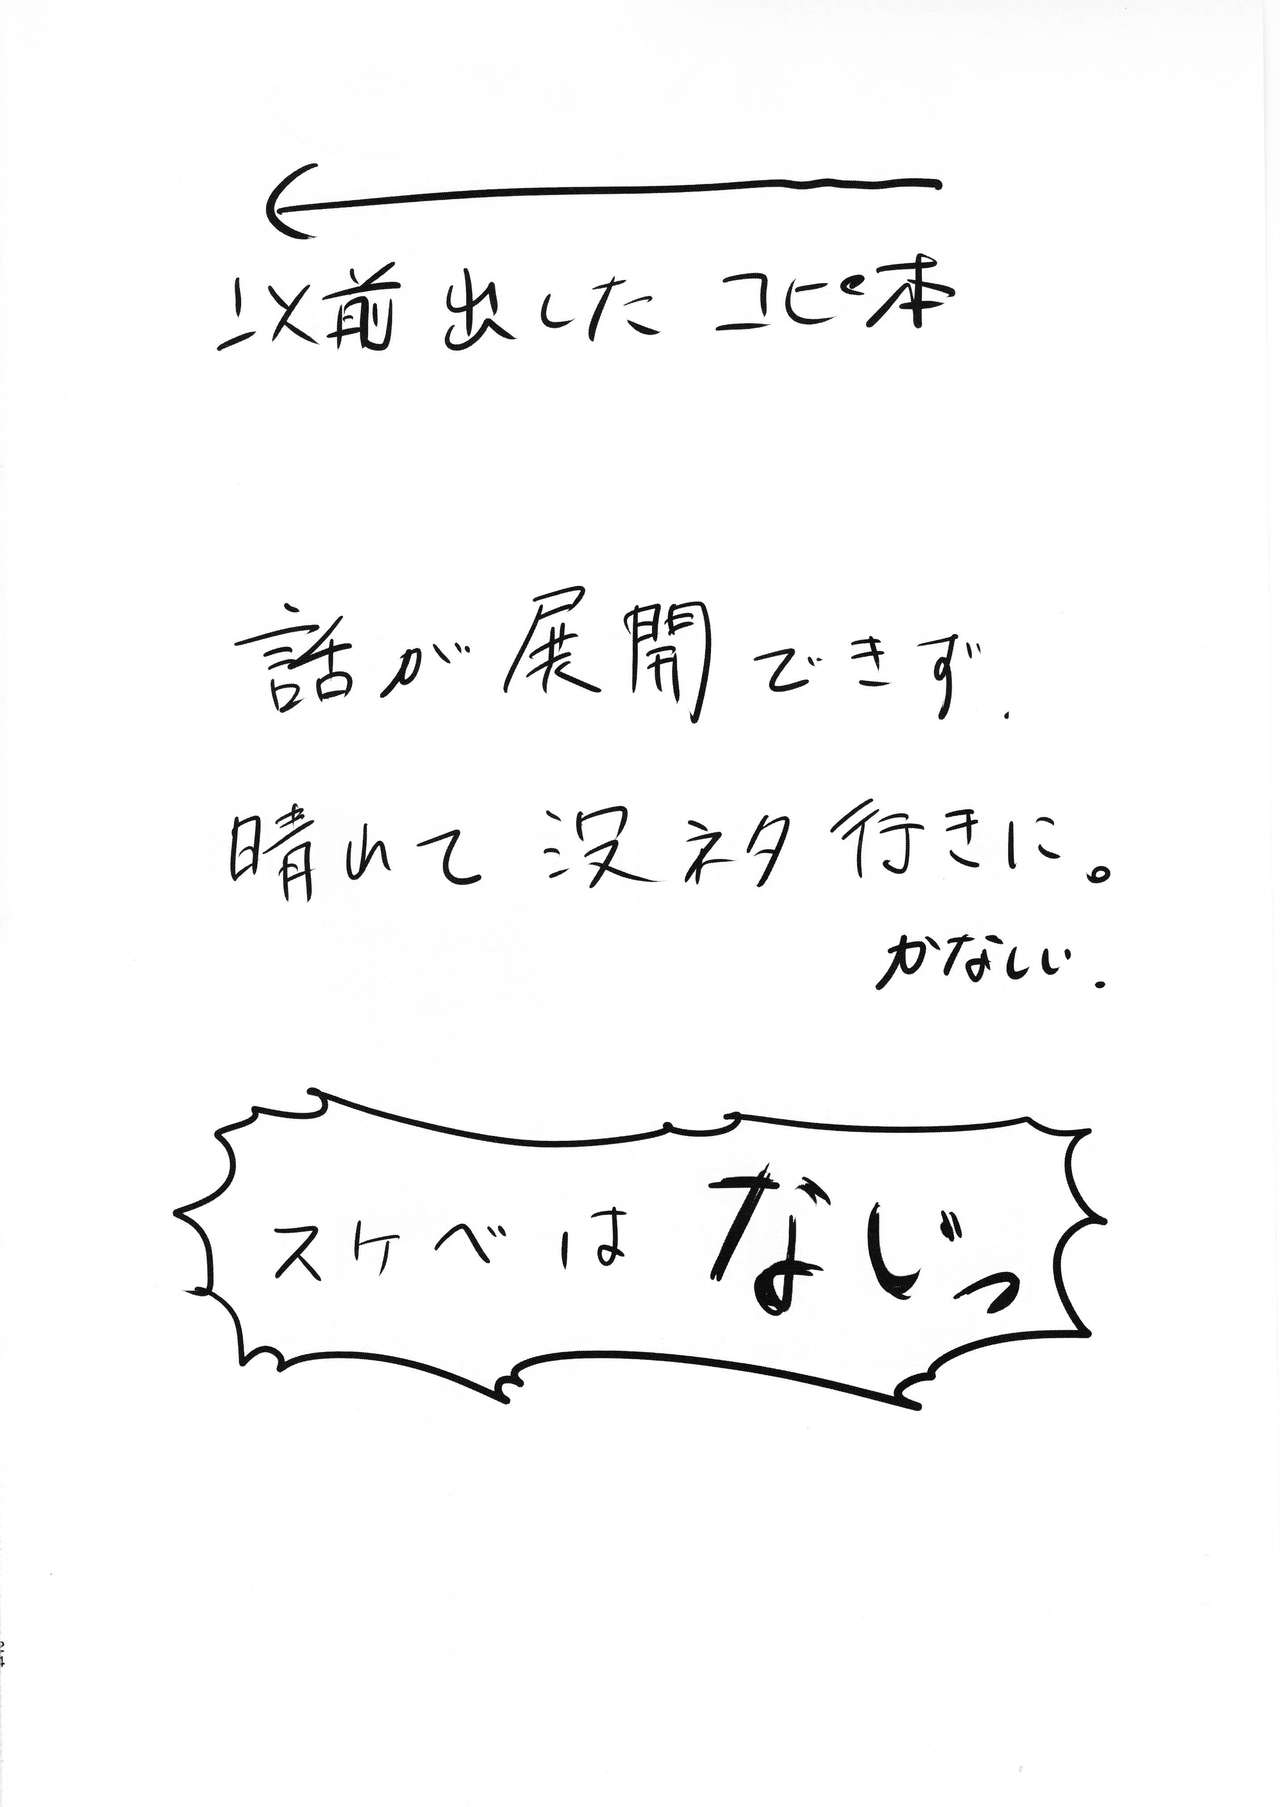 以前出したコピ本
話が展開できず.
晴れて没ネタ行きに。
かなしい.
スケベはなじっ